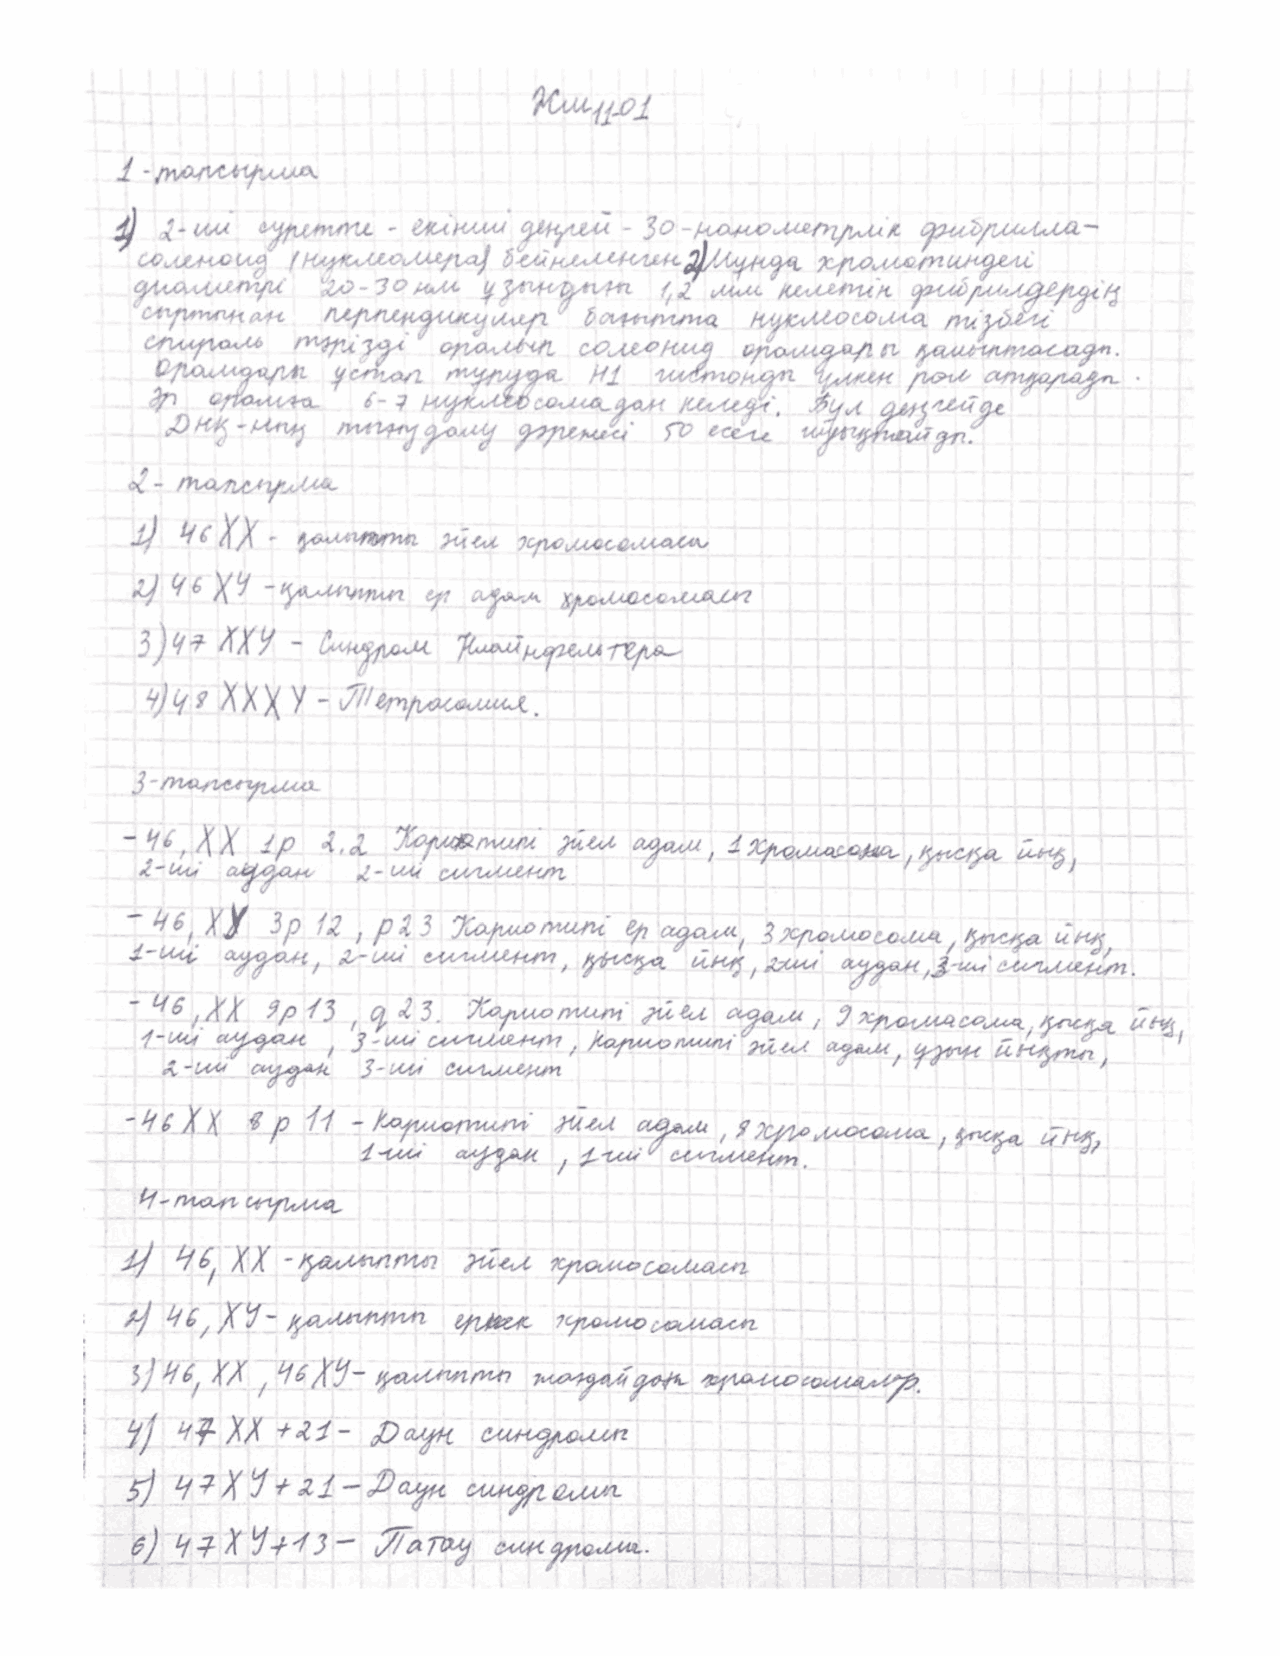 ЖМ11-01
1-тапсырма
1) 2-ші суретте - екінші деңгей - 30-нанометрлік фибрилла-
соленоид (нуклеомера) бейнеленген 2) Мұнда хроматиндегі
диаметрі 20-30 нм ұзындығы 1,2 мм келетін фибрилдердің
сыртынан перпендикуляр бағытта нуклеосома тізбегі
спираль тәрізді оралып солеонид орамдары қалыптасады.
Орамдары ұстап тұруда H1 гистонды үлкен рол атқарады.
Әр орамға 6-7 нуклеосомадан келеді. Бұл деңгейде
ДНҚ-ның тығыздалу дәрежесі 50 есеге
2- тапсырма
1) 46 XX - қалыпты әйел хромосомасы
2) 46 ХУ - қалыпты ер адам хромосомасы
3) 47 ХХУ - Синдром Клайнфельтера
4) 48 ХХХУ - Тетрасомия.
3-тапсырма
- 46, XX 1p 2.2 Кариотипі әйел адам, 1 хромасома, қысқа иық,
2-ші аудан 2-ші сигмент
- 46, ХУ 3p 12, p23 Кариотипі ер адам, 3 хромосома, қысқа иық,
1-ші аудан, 2-ші сигмент, қысқа иық, 2ші аудан, 3-ші сигмент.
- 46, XX 9p13, q23. Кариотипі әйел адам, 9 хромасома, қысқа иық,
1-ші аудан, 3-ші сигмент, Кариотипі әйел адам, ұзын иықты,
2-ші аудан 3-ші сигмент
- 46 XX 8 p 11 - Кариотипі әйел адам, 8 хромосома, қысқа иық,
1-ші аудан, 1-ші сигмент.
4-тапсырма
1) 46, XX - қалыпты әйел хромосомасы
2) 46, ХУ - қалыпты еркек хромосомасы
3) 46, XX, 46 ХУ - қалыпты жағдайдағы хромосомалар.
4) 47 XX +21 - Даун синдромы
5) 47 ХУ +21 - Даун синдромы
6) 47 ХУ+13 - Патау синдромы.